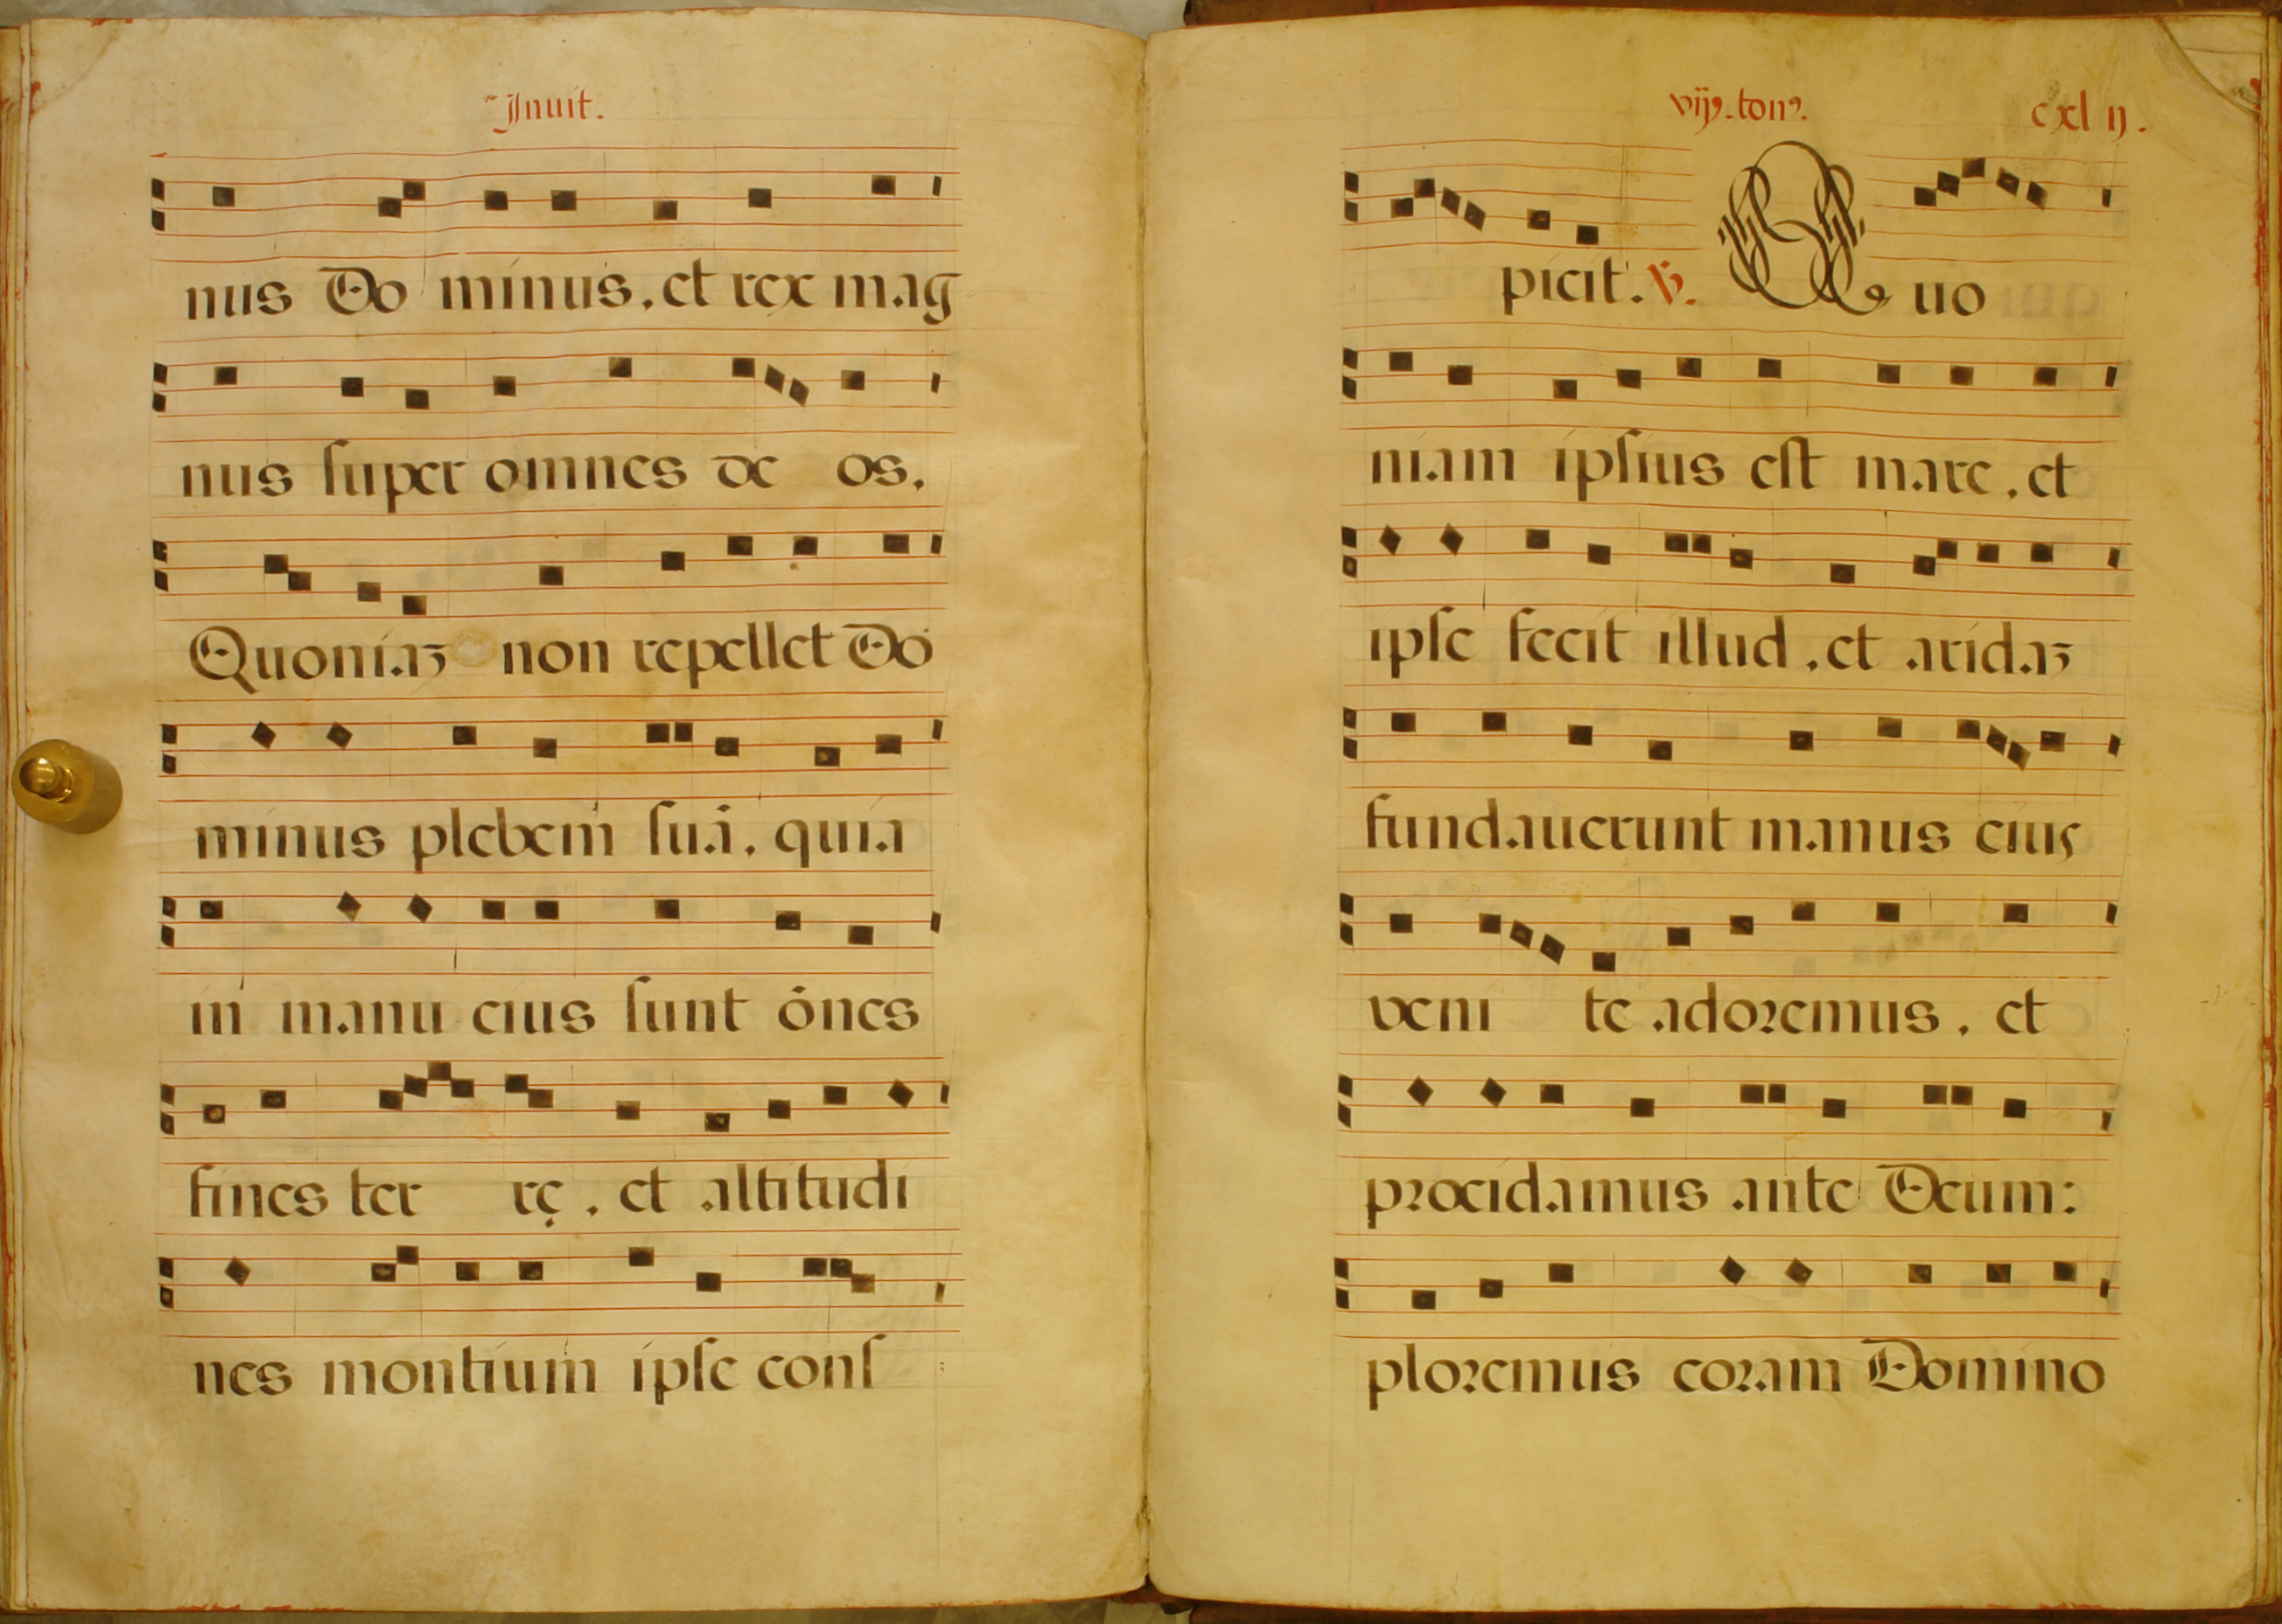 Inuit.
nus Do minus, et rex mag
nus ſuper omnes de os,
Quoniaʒ non repellet Do
minus plebem ſuā, quia
in manu eius ſunt ōnes
fines ter rę, et altitudi
nes montium ipſe conſ
vijꝰ. tonꝰ. cxlij.
picit. ℣. Quo
niam ipſius eſt mare, et
ipſe fecit illud, et aridaʒ
fundauerunt manus eius
veni te adoꝛemus, et
pꝛocidamus ante Deum:
ploꝛemus coꝛam Domino